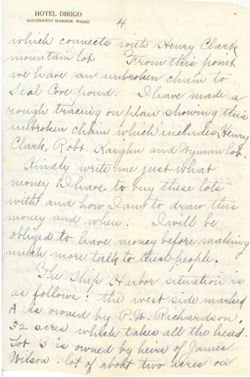 HOTEL DIRIGO
SOUTHWEST HARBOR, MAINE
4
which connects with Henry Clark
mountain lot. From this point
we have an unbroken chain to
Seal Cove pond. I have made a
rough tracing on plan showing this
unbroken chain which includes Henry
Clark, Robt. Kaighn and Wyman lots.
Kindly write me just what
money I have to buy these lots
with and how I am to draw this
money and when. I will be
obliged to have money before making
much more talk to these people.
The Ship Harbor situation is
as follows: the west side marked
A is owned by P. W. Richardson,
32 acres which takes all the head.
Lot B is owned by heirs of James
Wilson: lot of about two acres on